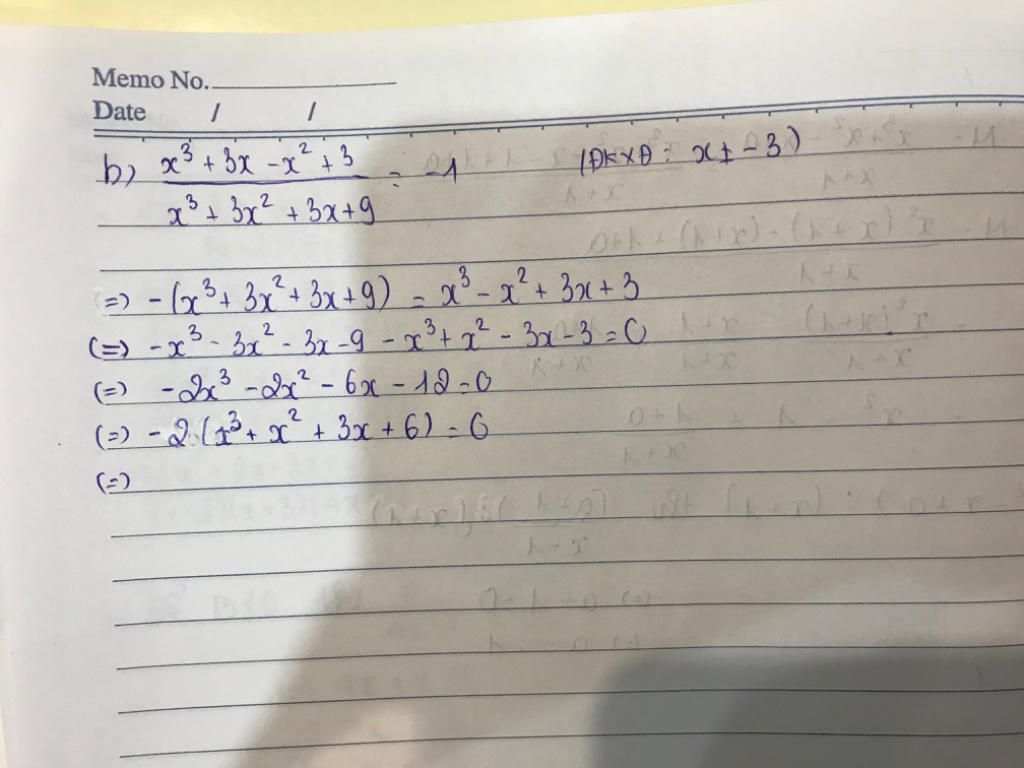 Memo No.
Date / /
b) x³ + 3x - x² + 3 / x³ + 3x² + 3x + 9 = -1 (ĐKXĐ : x ≠ -3)
=) -(x³ + 3x² + 3x + 9) = x³ - x² + 3x + 3
(=) -x³ - 3x² - 3x - 9 - x³ + x² - 3x - 3 = 0
(=) -2x³ - 2x² - 6x - 12 = 0
(=) -2(x³ + x² + 3x + 6) = 0
(=)